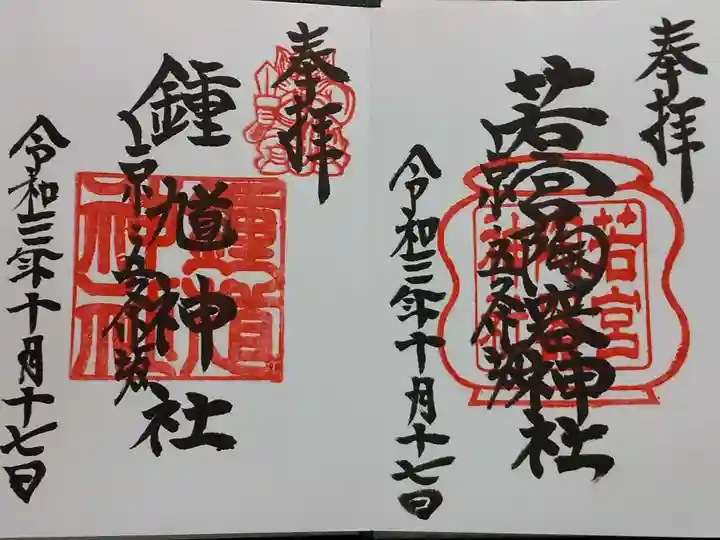 奉拝
若宮陶器神社
京五条坂
令和三年十月十七日
若宮
陶器
神社
奉拝
鍾馗神社
京五条坂
令和三年十月十七日
鍾馗
神社